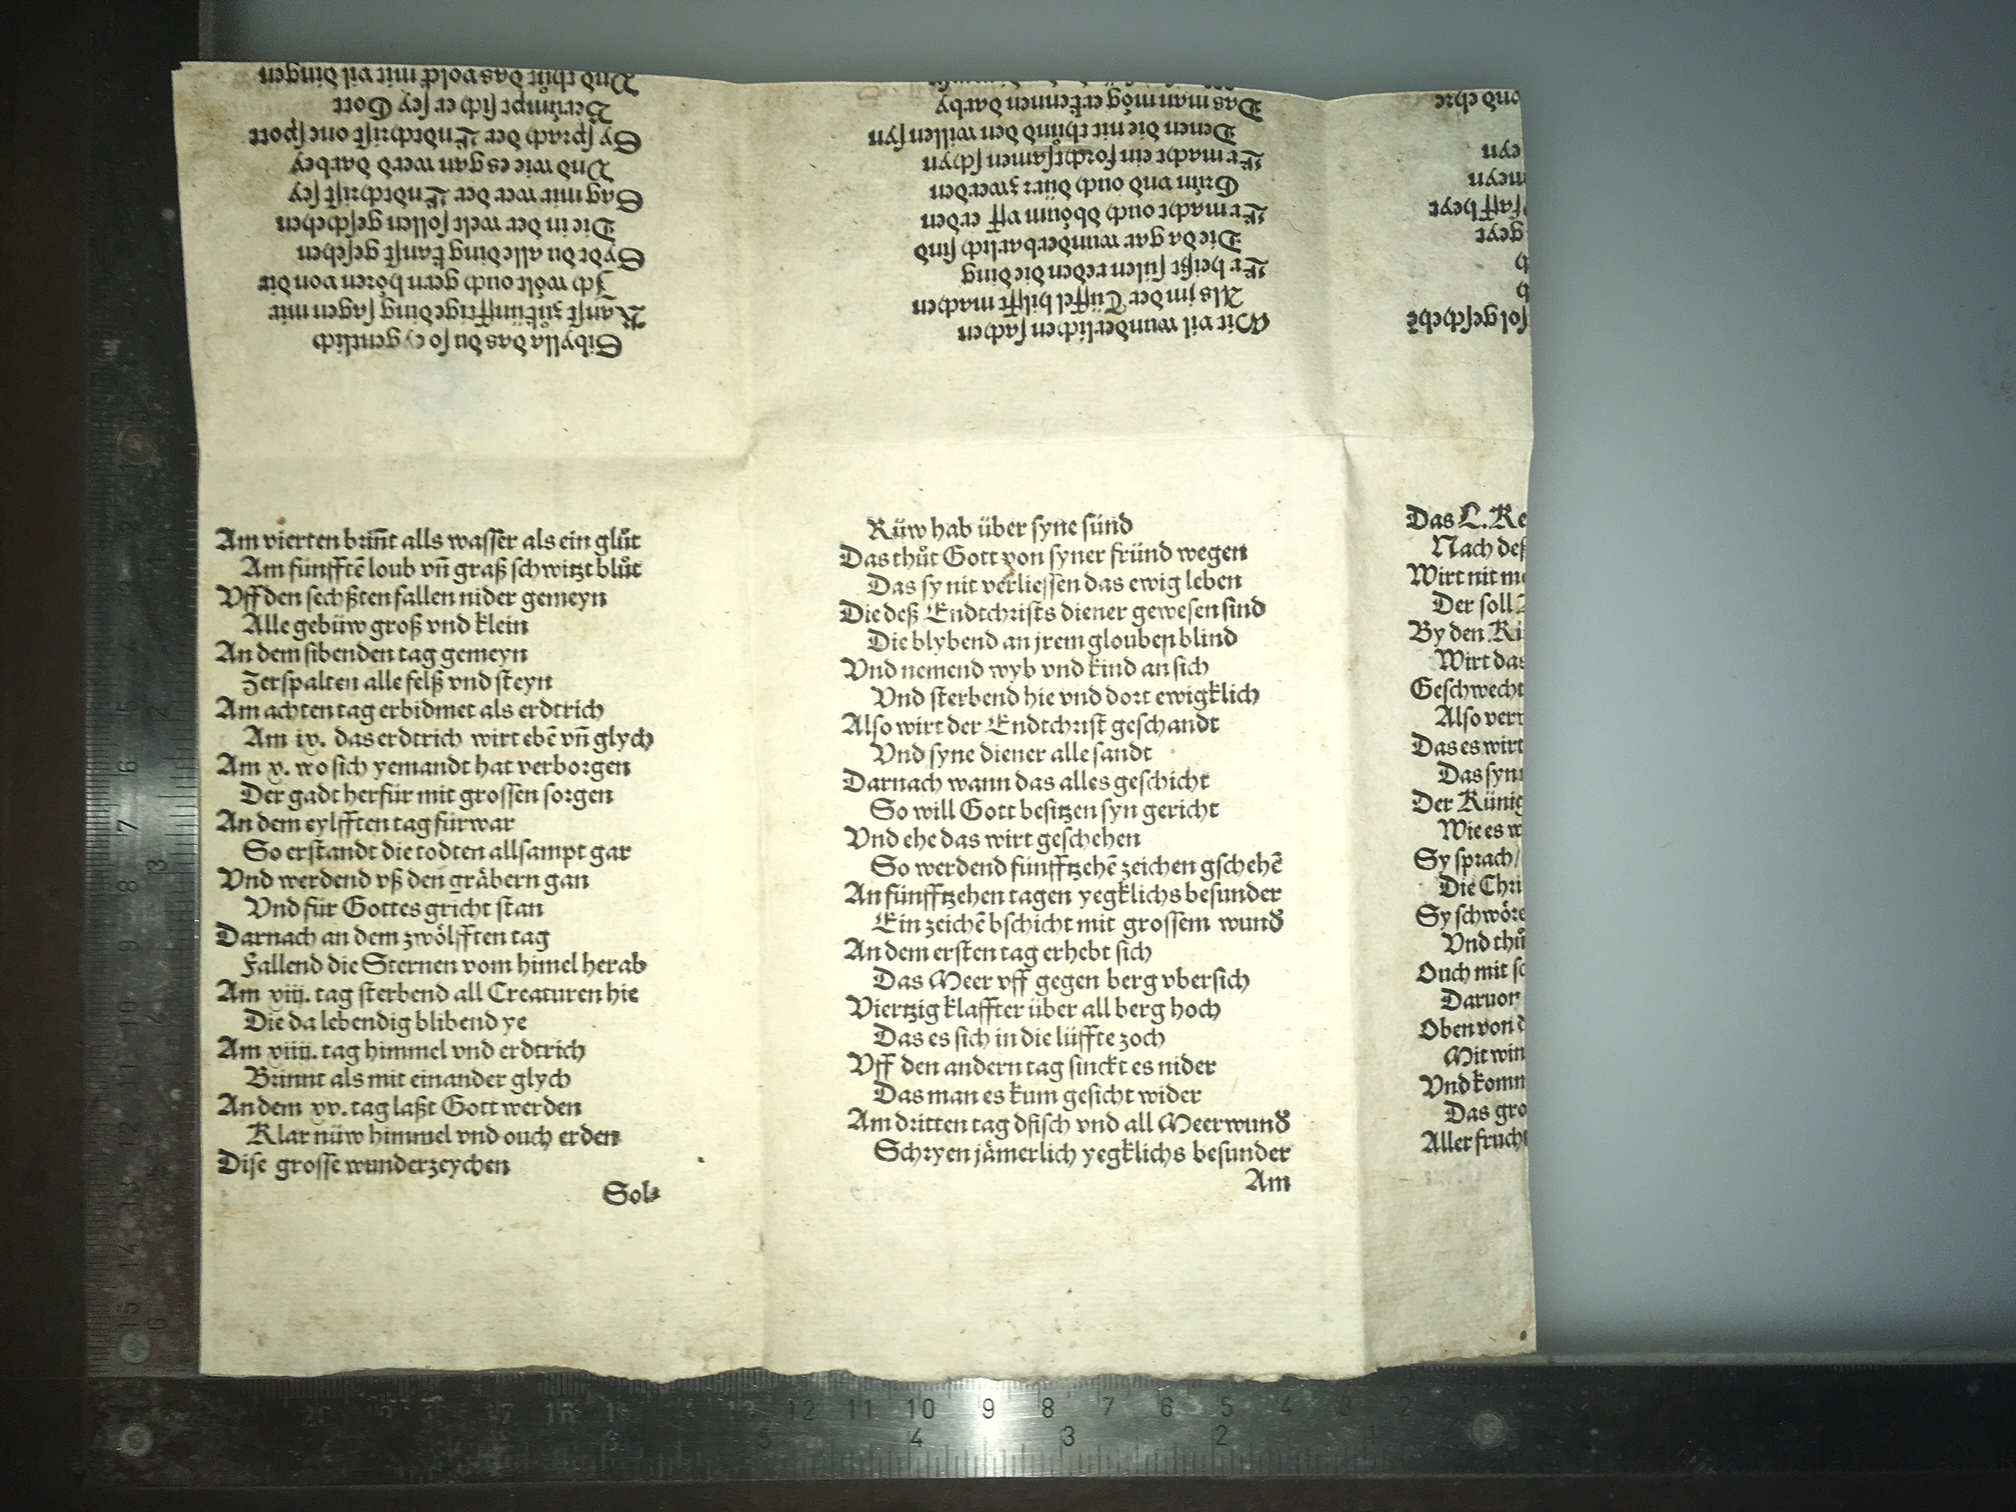 Am vierten briñt alls wasser als ein glůt
Am fünfftē loub vñ graß schwitzt blůt
Vff den sechßten fallen nider gemeyn
Alle gebüw groß vnd klein
An dem sibenden tag gemeyn
Zerspalten alle felß vnd steyn
Am achten tag erbidmet als erdtrich
Am ix. das erdtrich wirt ebē vñ glych
Am x. wo sich yemandt hat verborgen
Der gadt herfür mit grossen sorgen
An dem eylfften tag fürwar
So erstandt die todten allsampt gar
Vnd werdend vß den gräbern gan
Vnd für Gottes gricht stan
Darnach an dem zwölfften tag
Fallend die Sternen vom himel herab
Am xiij. tag sterbend all Creaturen hie
Die da lebendig blibend ye
Am xiiij. tag himmel vnd erdtrich
Brinnt als mit einander glych
An dem xv. tag laßt Gott werden
Klar nüw himmel vnd ouch erden
Dise grosse wunderzeychen
Sol⸗
Rüw hab über syne sünd
Das thůt Gott von syner fründ wegen
Das sy nit verliessen das ewig leben
Die deß Endtchrists diener gewesen sind
Die blybend an jrem glouben blind
Vnd nemend wyb vnd kind an sich
Vnd sterbend hie vnd dort ewigklich
Also wirt der Endtchrist geschandt
Vnd syne diener alle sandt
Darnach wann das alles geschicht
So will Gott besitzen syn gericht
Vnd ehe das wirt geschehen
So werdend fünfftzehē zeichen gschehē
An fünfftzehen tagen yegklichs besunder
Ein zeichē bschicht mit grossem wund
An dem ersten tag erhebt sich
Das Meer vff gegen berg vbersich
Viertzig klaffter über all berg hoch
Das es sich in die lüffte zoch
Vff den andern tag sinckt es nider
Das man es kum gesicht wider
Am dritten tag dfisch vnd all Meerwund
Schryen jämerlich yegklichs besunder
Am
Das L. Re
Nach deß
Wirt nit
Der soll
By den
Wirt das
Geschwecht
Also
Das es wirt
Das syn
Der Künig
Wie es
Sy sprach/
Die Chri
Sy schwöre
Vnd thů
Ouch mit
Daruor
Oben von
Mit win
Vnd komm
Das gro
Aller frucht
Sibylla das du so eygentlich
Kanst zůkünfftige ding sagen mir
Ich wölt ouch gern hören von dir
Sydt du alle ding kanst gesehen
Die in der welt sollen geschehen
Sag mir wer der Endtchrist sey
Vnd wie es gan werd darbey
Sy sprach der Endtchrist one spott
Berümpt sich er sey Gott
Vnd thůt das volck mit vil dingen
Mit vil wunderlichen sachen
Als jm der Tüffel hilfft machen
Er heißt sülen reden die ding
Die da gar wunderbarlich sind
Er macht ouch dböum vff erden
Grün vnd ouch dürr zwerden
Er macht ein forchtsamen schyn
Denen die nit thůnd den willen syn
Das man mög erkennen darby
sol geschehē
geyt
heyt
meyn
eyn
vnd ehre